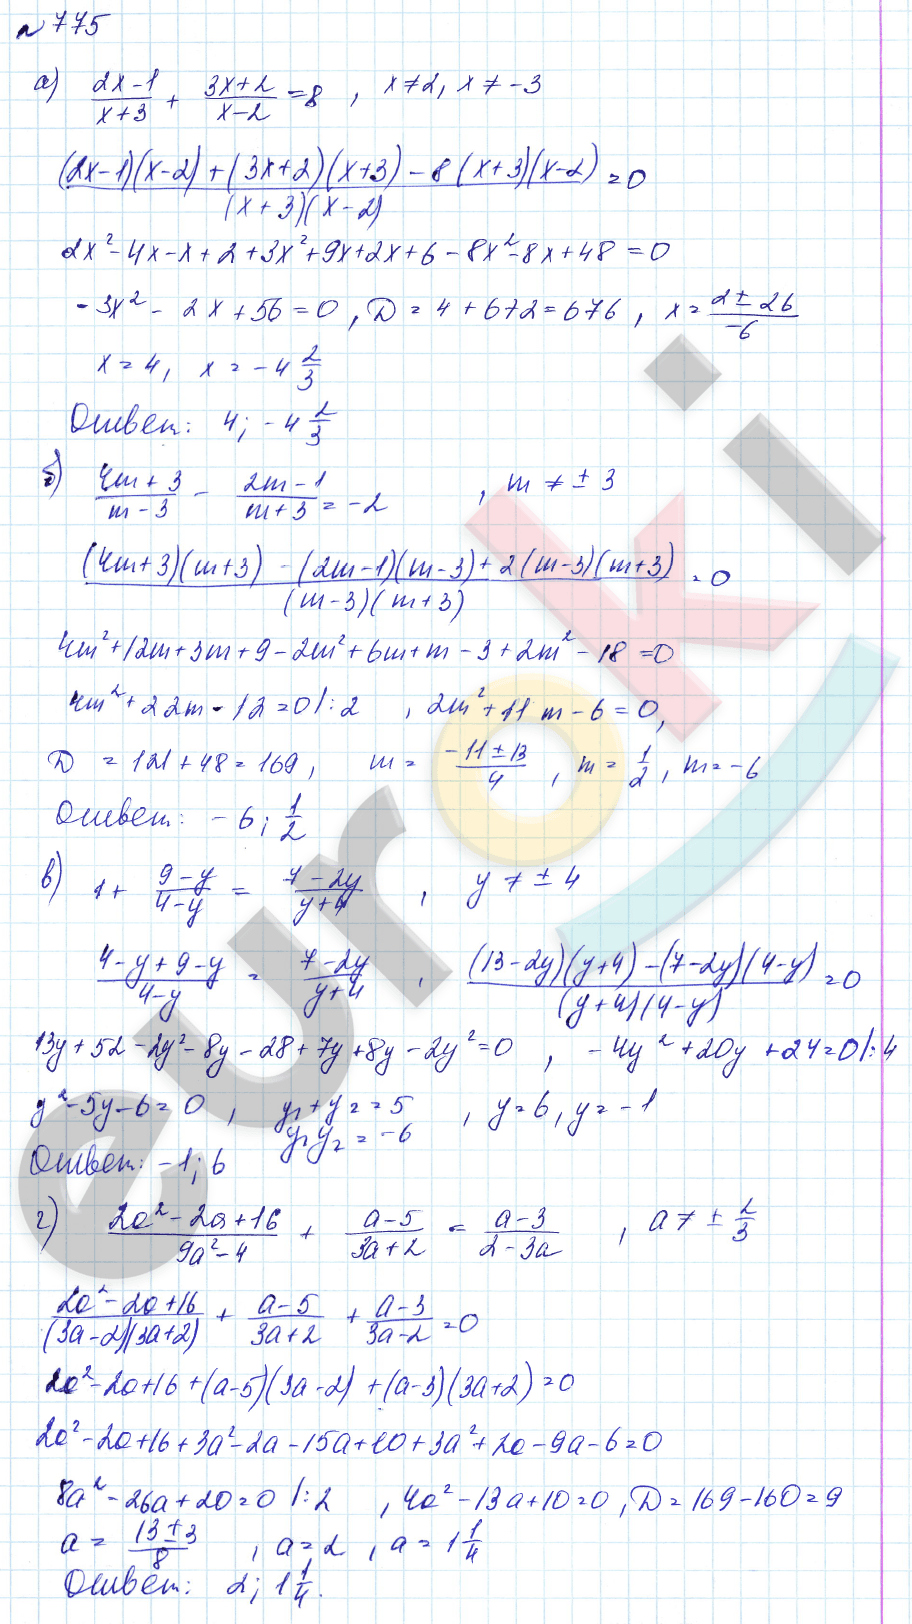 №775
а) (2x-1)/(x+3) + (3x+2)/(x-2) = 8 , x≠2, x≠-3
((2x-1)(x-2)+(3x+2)(x+3)-8(x+3)(x-2))/((x+3)(x-2)) = 0
2x²-4x-x+2+3x²+9x+2x+6-8x²-8x+48=0
-3x²-2x+56=0, D=4+672=676, x=(2±26)/(-6)
x=4, x=-4 2/3
Ответ: 4; -4 2/3
б) (4m+3)/(m-3) - (2m-1)/(m+3) = -2 , m≠±3
((4m+3)(m+3)-(2m-1)(m-3)+2(m-3)(m+3))/((m-3)(m+3)) = 0
4m²+12m+3m+9-2m²+6m+m-3+2m²-18=0
4m²+22m-12=0 |:2 , 2m²+11m-6=0,
D=121+48=169, m=(-11±13)/4, m=1/2, m=-6
Ответ: -6; 1/2
в) 1+(9-y)/(4-y) = (7-2y)/(y+4) , y≠±4
(4-y+9-y)/(4-y) = (7-2y)/(y+4) , ((13-2y)(y+4)-(7-2y)(4-y))/((y+4)(4-y)) = 0
13y+52-2y²-8y-28+7y+8y-2y²=0 , -4y²+20y+24=0 |:4
y²-5y-6=0 , y₁+y₂=5 , y=6, y=-1
y₁y₂=-6
Ответ: -1; 6
г) (2a²-2a+16)/(9a²-4) + (a-5)/(3a+2) = (a-3)/(2-3a) , a≠±2/3
(2a²-2a+16)/((3a-2)(3a+2)) + (a-5)/(3a+2) + (a-3)/(3a-2) = 0
2a²-2a+16+(a-5)(3a-2)+(a-3)(3a+2)=0
2a²-2a+16+3a²-2a-15a+10+3a²+2a-9a-6=0
8a²-26a+20=0 |:2 , 4a²-13a+10=0, D=169-160=9
a=(13±3)/8 , a=2 , a=1 1/4
Ответ: 2; 1 1/4.
euroki